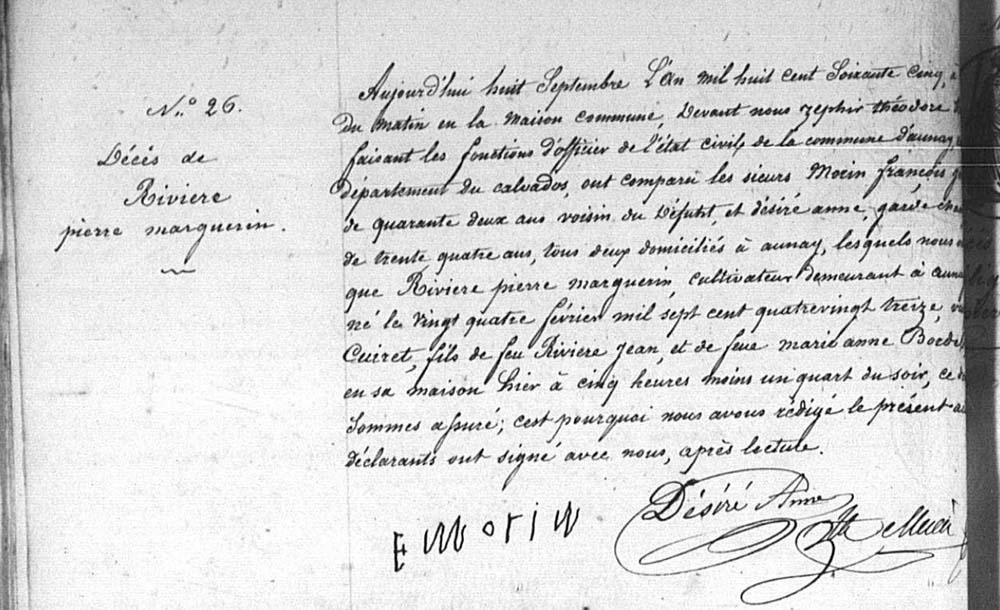 N.° 26.
Décés de
Riviere
pierre marguerin.
Aujourd'hui huit Septembre L'an mil huit cent Soixante cinq, à
du matin en la Maison commune, Devant nous Zéphir théodore
faisant les fonctions d'officier de l'état civil de la commune d'aunay
département du calvados, ont comparu les sieurs Morin françois
de quarante deux ans voisin du Défunt, et désiré anne, garde cham
de trente quatre ans, tous deux domiciliés à aunay, lesquels nous
que Riviere pierre marguerin, cultivateur demeurant à auna
né le vingt quatre février mil sept cent quatrevingt treize,
Cuiret, fils de feu Riviere Jean, et de feue marie anne Borde
en sa maison hier à cinq heures moins un quart du soir, ce
Sommes assuré; c'est pourquoi nous avons rédigé le présent a
déclarants ont signé avec nous, après lecture.
F Morin
Désiré Anne